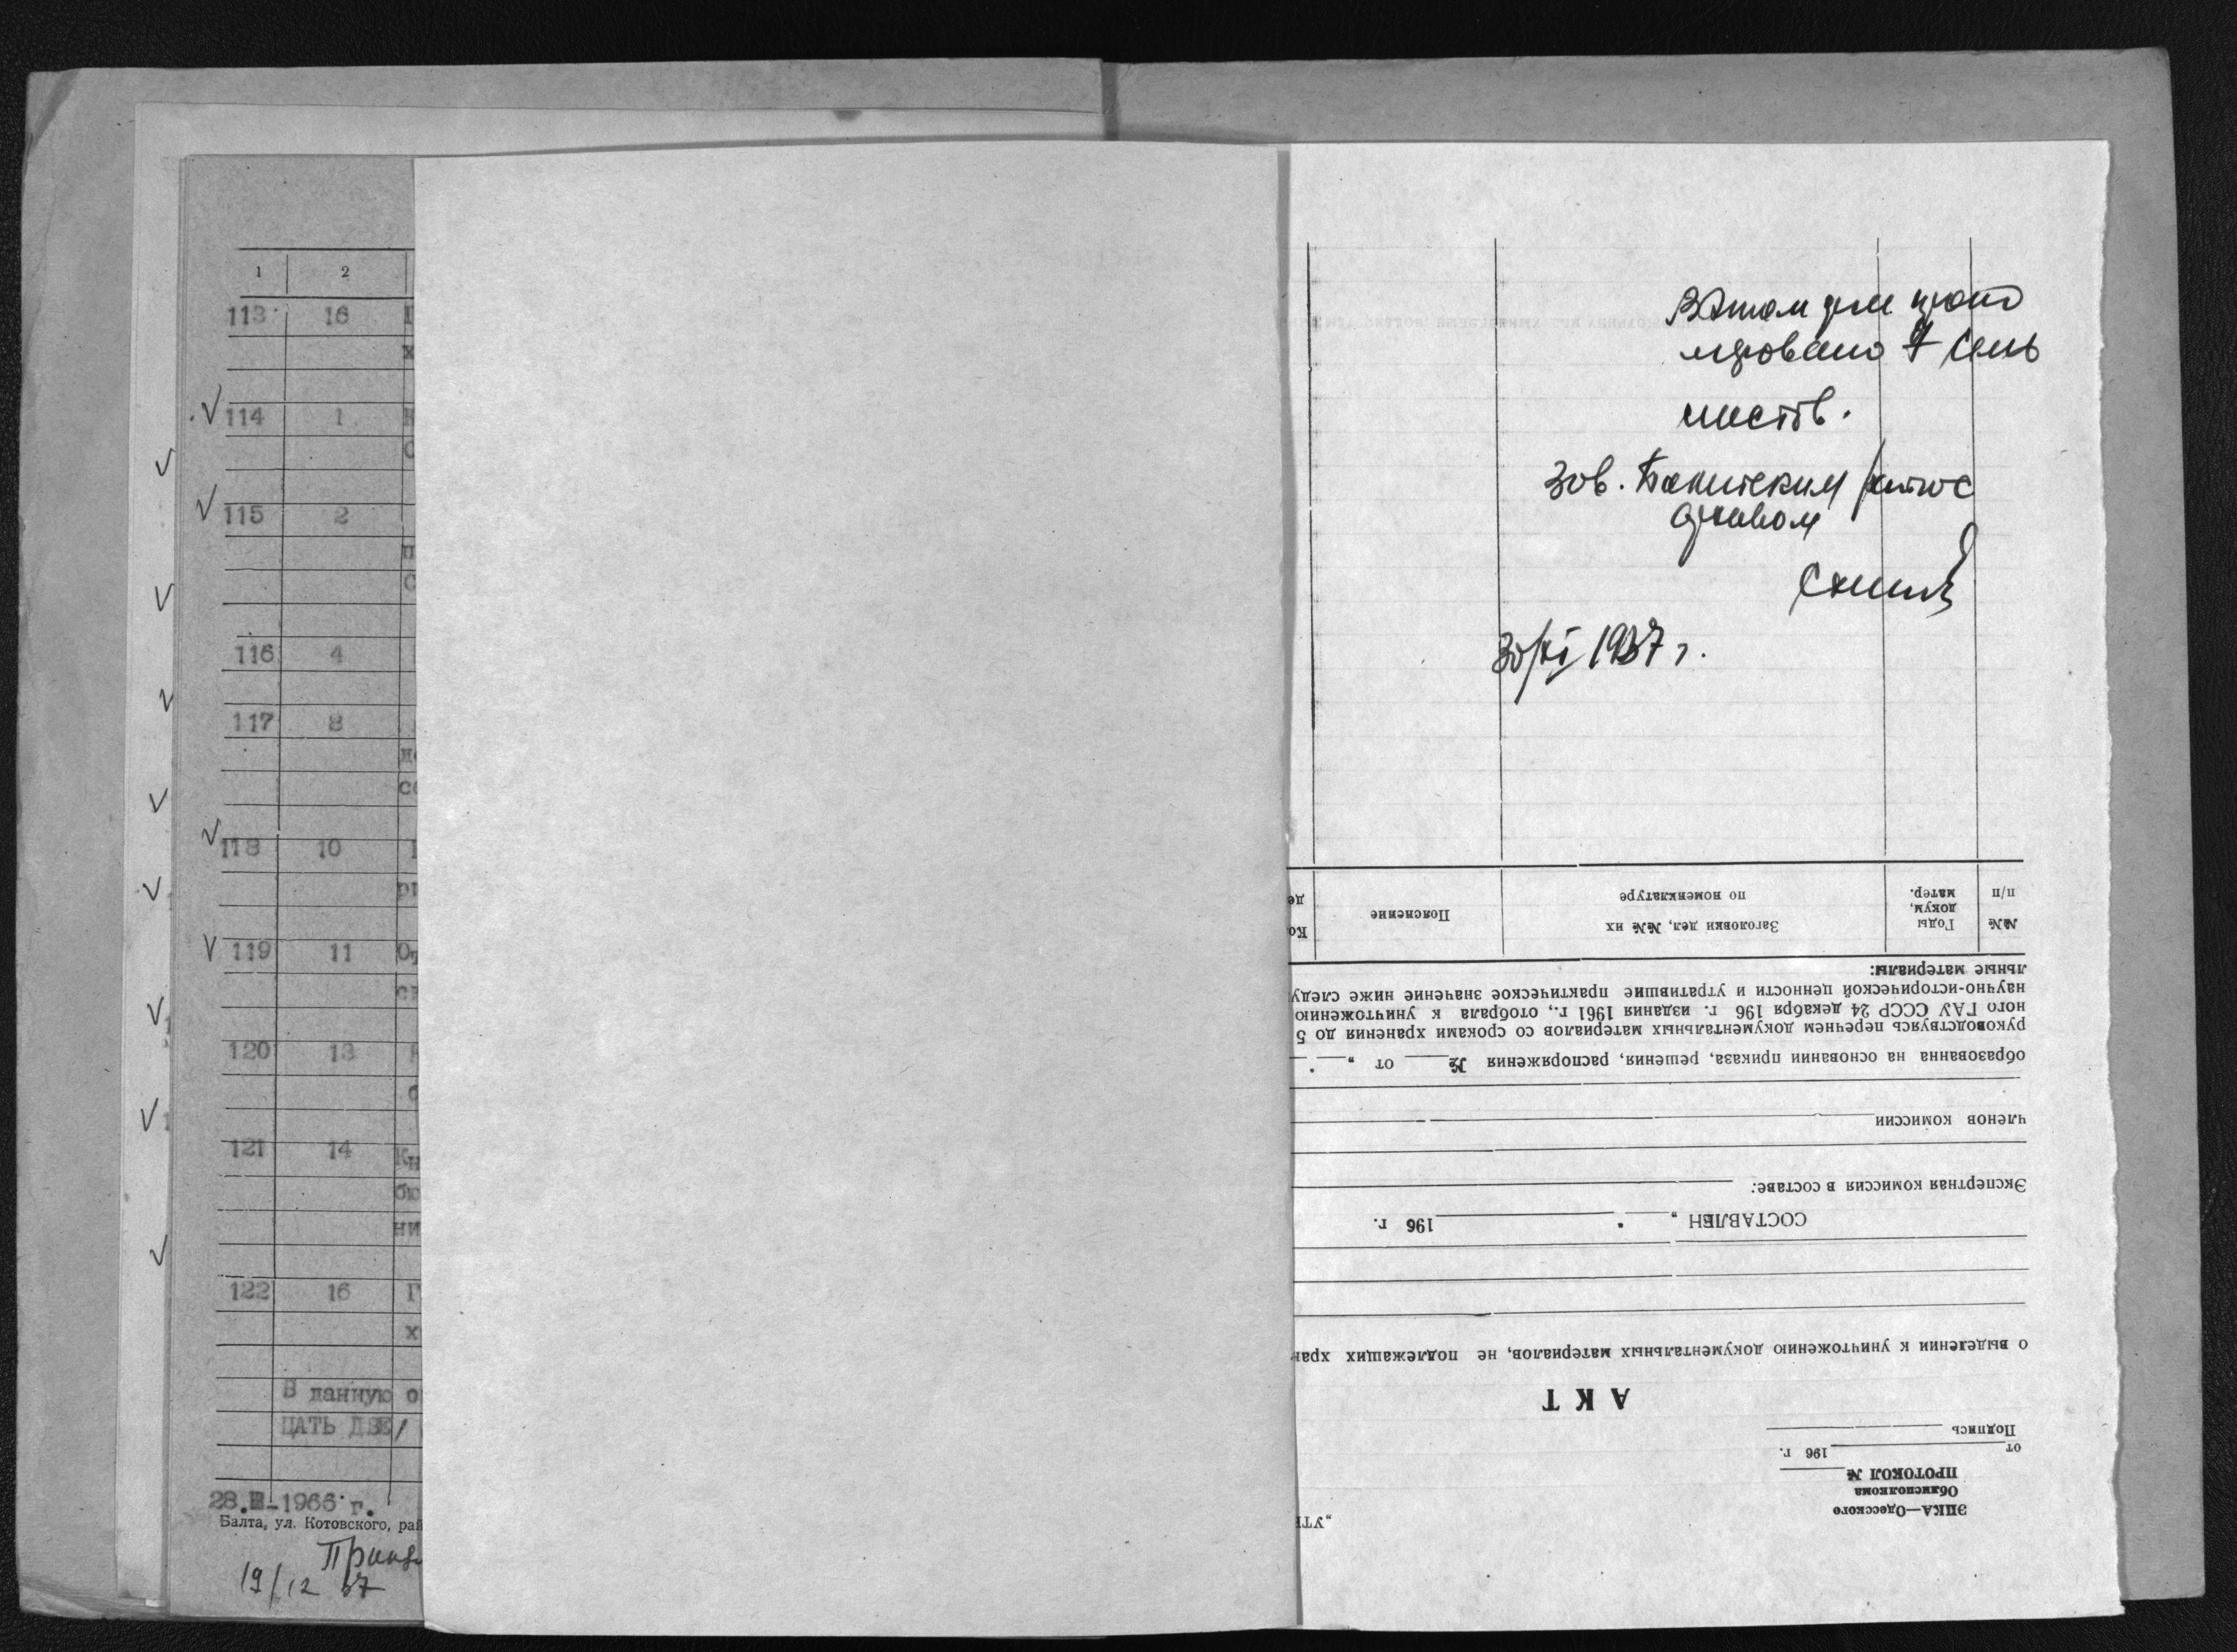 1 2
113 16 П
х
114 1 К
С
115 2
п
С
116 4
117 8
со
118 10
ри
119 11 От
св
120 13
б
121 14 Кн
бю
ни
122 16 Г
х
В данную о
ЦАТЬ ДВЕ/
28. -1966 г.
Балта, ул. Котовского, рай
19/12
В этом деле
7 (семь
листов.
Зав. Балтским
архивом
30/XI 19 7 г.
ЭПКА—Одесского
Облисполкома
ПРОТОКОЛ №
от 196 г.
Подпись
„УТ
АКТ
о выделении к уничтожению документальных материалов, не подлежащих хран
СОСТАВЛЕН „ " 196 г.
Экспертная комиссия в составе:
членов комиссии
образованна на основании приказа, решения, распоряжения № от „ "
руководствуясь перечнем документальных материалов со сроками хранения до 5
ного ГАУ СССР 24 декабря 196 г. издания 1961 г., отобрала к уничтожению
научно-исторической ценности и утратившие практическое значение ниже следу
льные материалы:
№№ п/п
Годы докум. матер.
Заголовки дел, №№ их по номенклатуре
Пояснение
Ко
де